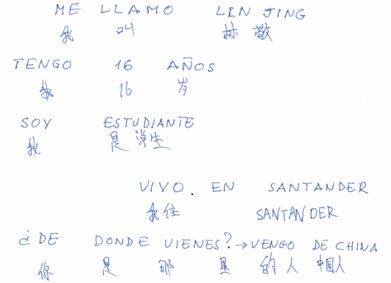 ME LLAMO LIN JING
我 叫 林 敬
TENGO 16 AÑOS
我 16 岁
SOY ESTUDIANTE
我 是 学生
VIVO. EN SANTANDER
我住 SANTANDER
¿DE DONDE VIENES? → VENGO DE CHINA
你 是 那 里 的 人 中国人